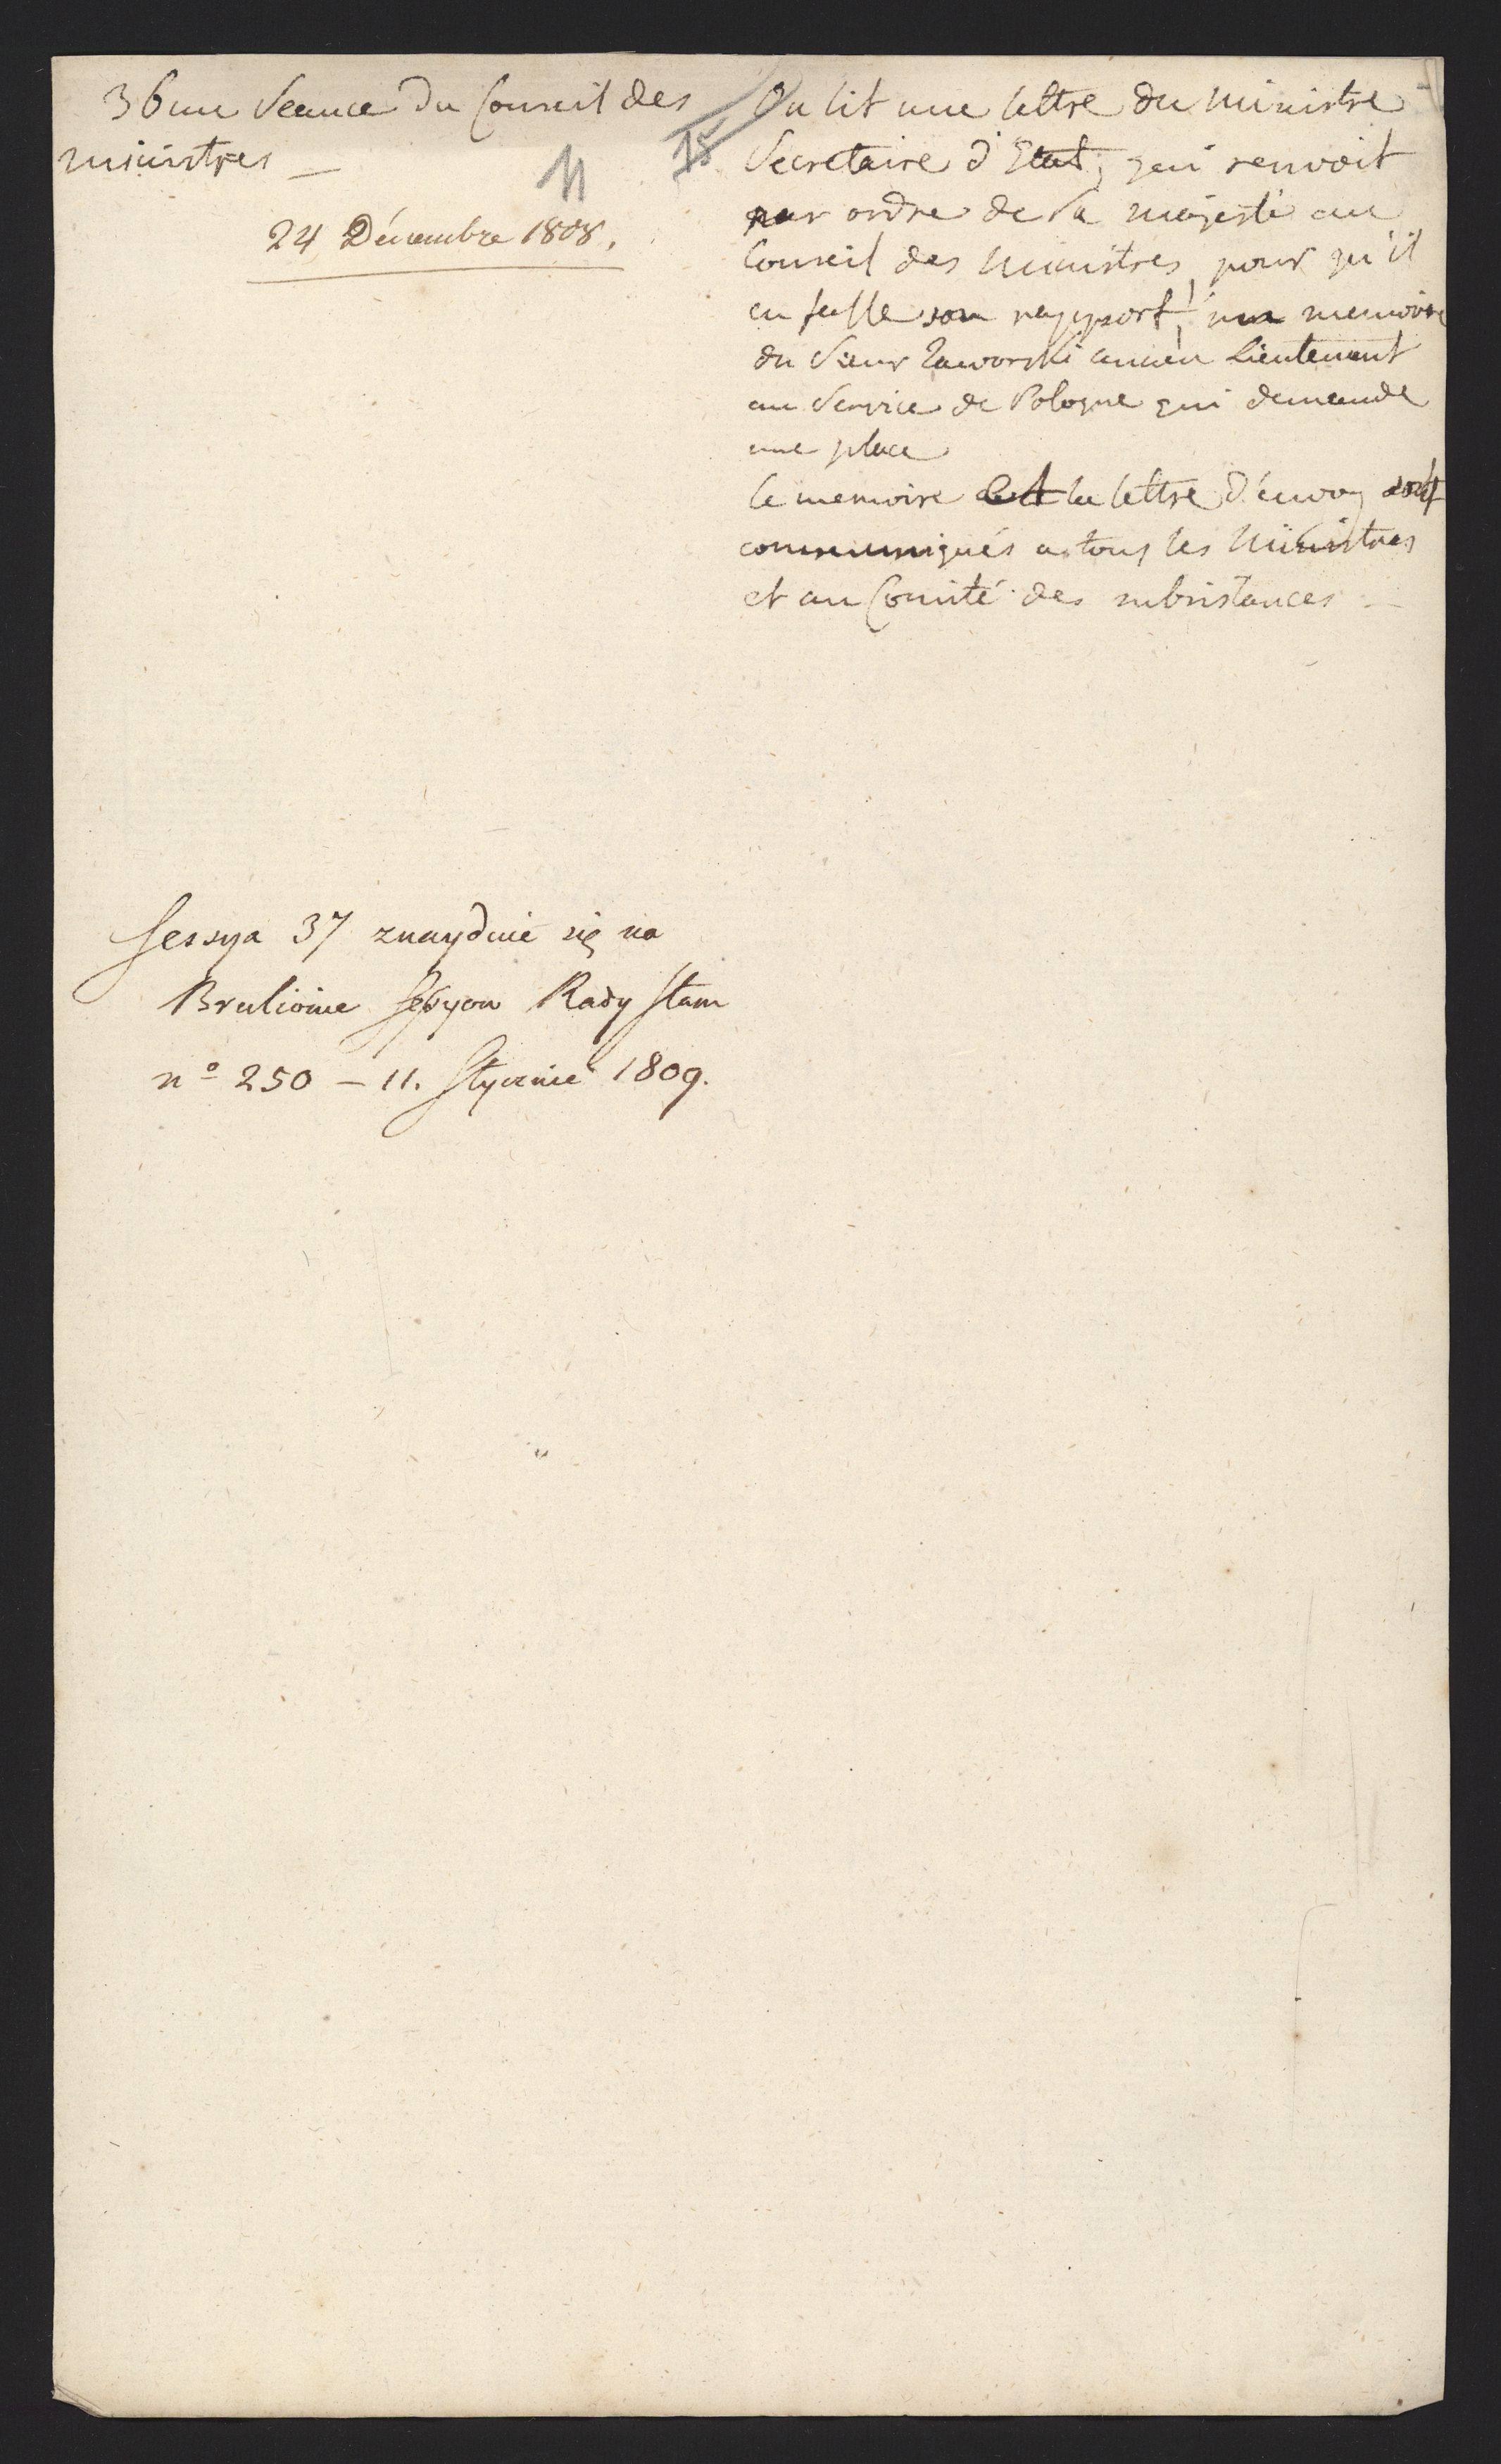 36me Seance du Conseil des
ministres —
11
24 Décembre 1808.
15
On lit une lettre du Ministre
Secretaire d'Etat, qui renvoit
par ordre de Sa Majesté au
Conseil des Ministres, pour qu'il
en fasse son rapport, un memoire
du Sieur Zaworski ancien Lieutenant
au Service de Pologne qui demande
une place
Ce memoire et la lettre d'envoy sont
communiqués a tous les Ministres
et au Comité des subsistances —
Sessya 37 znayduie się na
Brulionie Sessyow Rady Stanu
nº 250 – 11. Stycznia 1809.